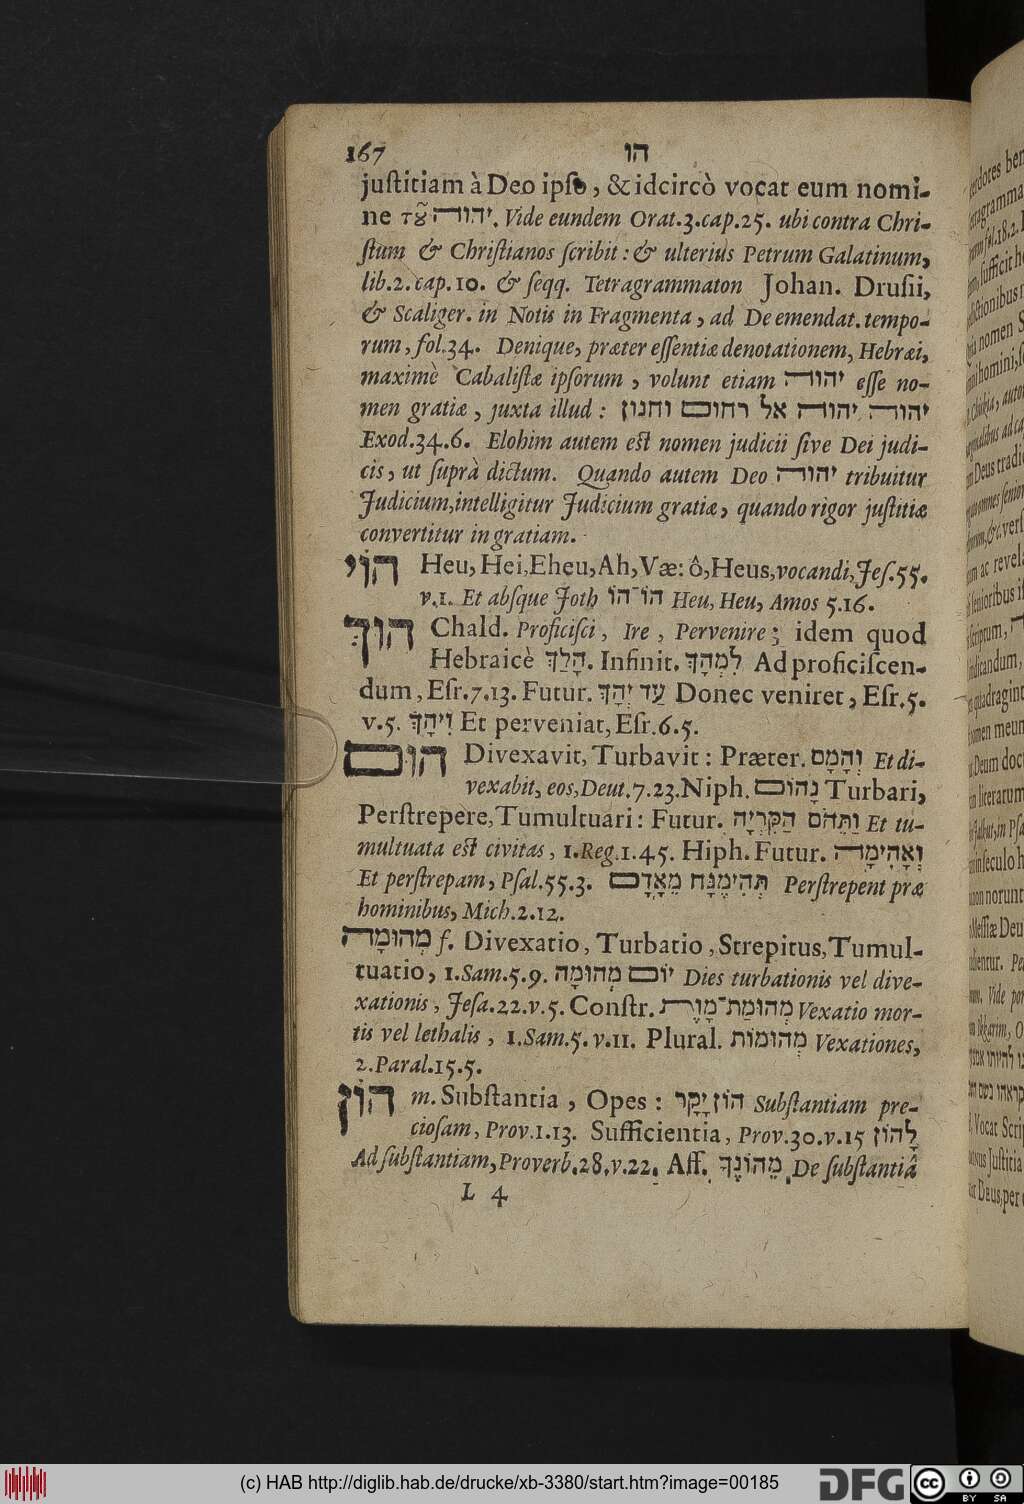 167 הו
juſtitiam à Deo ipſo, & idcircò vocat eum nomi-
ne τῦ יהוה. Vide eundem Orat.3.cap.25. ubi contra Chri-
ſtum & Chriſtianos ſcribit: & ulterius Petrum Galatinum,
lib.2.cap.10. & ſeqq. Tetragrammaton Johan. Druſii,
& Scaliger. in Notis in Fragmenta, ad De emendat. tempo-
rum, fol.34. Denique, præter eſſentiæ denotationem, Hebræi,
maximè Cabaliſtæ ipſorum, volunt etiam יהוה eſſe no-
men gratiæ, juxta illud: יהוה יהוה אל רחום וחנון
Exod.34.6. Elohim autem eſt nomen judicii ſive Dei judi-
cis, ut ſuprà dictum. Quando autem Deo יהוה tribuitur
Judicium, intelligitur Judicium gratiæ, quando rigor juſtitiæ
convertitur in gratiam.
הוֹי Heu, Hei, Eheu, Ah, Væ: ô, Heus, vocandi, Jeſ.55.
v.1. Et abſque Joth הוֹ־הוֹ Heu, Heu, Amos 5.16.
הוּךְ Chald. Proficiſci, Ire, Pervenire; idem quod
Hebraicè הָלַךְ. Infinit. לִמְהָךְ Ad proficiſcen-
dum, Eſr.7.13. Futur. עַד יְהָךְ Donec veniret, Eſr.5.
v.5. וִיהָךְ Et perveniat, Eſr.6.5.
הוּם Divexavit, Turbavit: Præter. וְהָמָם Et di-
vexabit, eos, Deut.7.23. Niph. נָהוֹם Turbari,
Perſtrepere, Tumultuari: Futur. וַתֵּהֹם הַקִּרְיָה Et tu-
multuata eſt civitas, 1.Reg.1.45. Hiph. Futur. וְאָהִימָה
Et perſtrepam, Pſal.55.3. תְּהִימֶנָּה מֵאָדָם Perſtrepent præ
hominibus, Mich.2.12.
מְהוּמָה f. Divexatio, Turbatio, Strepitus, Tumul-
tuatio, 1.Sam.5.9. יוֹם מְהוּמָה Dies turbationis vel dive-
xationis, Jeſa.22.v.5. Conſtr. מְהוּמַת־מָוֶת Vexatio mor-
tis vel lethalis, 1.Sam.5.v.11. Plural. מְהוּמוֹת Vexationes,
2.Paral.15.5.
הוֹן m. Subſtantia, Opes: הוֹן יָקָר Subſtantiam pre-
cioſam, Prov.1.13. Sufficientia, Prov.30.v.15 לָהוֹן
Ad ſubſtantiam, Proverb.28.v.22. Aff. מֵהוֹנֶךָ De ſubſtantiâ
L 4
(c) HAB http://diglib.hab.de/drucke/xb-3380/start.htm?image=00185
DFG
cc BY SA